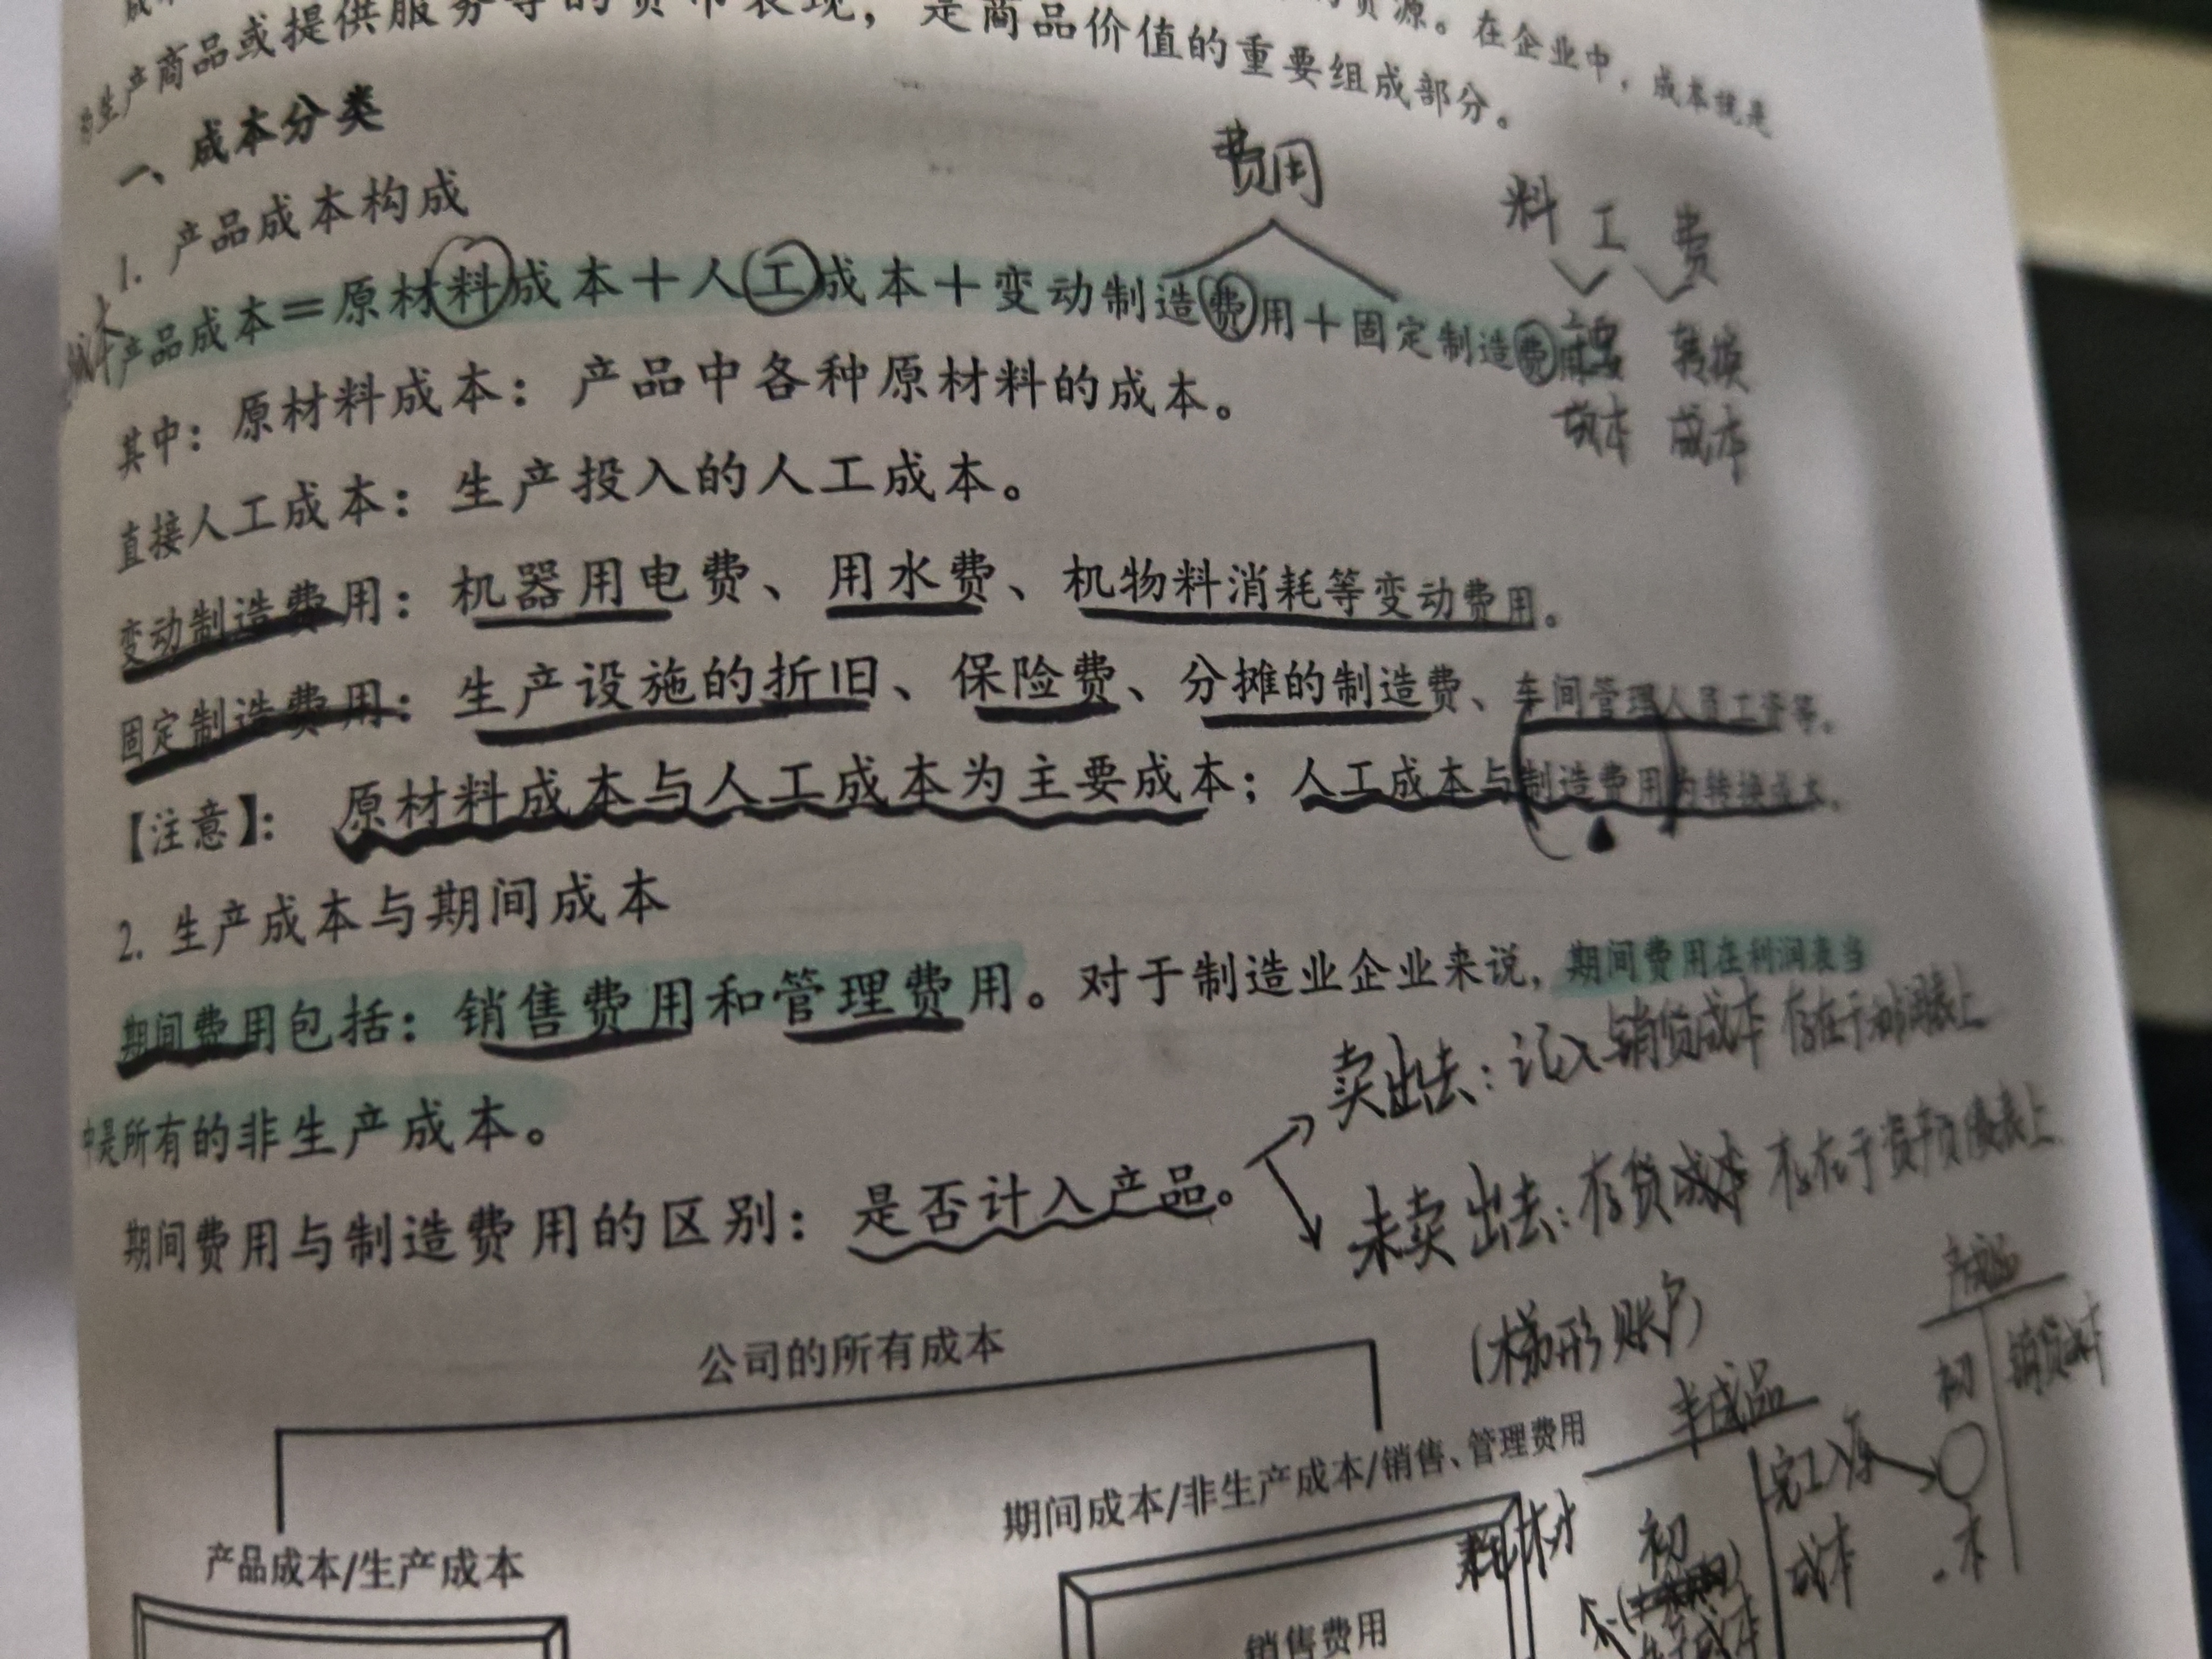 为生产商品或提供服务等的货币表现，是商品价值的重要组成部分。
资源。在企业中，成本就是
一、成本分类
1. 产品成本构成
费用
料 工 费
产品成本＝原材料成本＋人工成本＋变动制造费用＋固定制造费
转换
成本 成本
其中：原材料成本：产品中各种原材料的成本。
直接人工成本：生产投入的人工成本。
变动制造费用：机器用电费、用水费、机物料消耗等变动费用。
固定制造费用：生产设施的折旧、保险费、分摊的制造费、车间管理人员工资等。
【注意】：原材料成本与人工成本为主要成本；人工成本与制造费用为转换成本。
2. 生产成本与期间成本
期间费用包括：销售费用和管理费用。对于制造业企业来说，期间费用在利润表当
中是所有的非生产成本。
卖出去：记入销货成本 存在于利润表上
期间费用与制造费用的区别：是否计入产品。
未卖出去：存货成本 存在于资产负债表上
(梯形账户)
产成品
初 销货成本
半成品
公司的所有成本
期间成本/非生产成本/销售、管理费用
产品成本/生产成本
初
完工
成本
本
销售费用